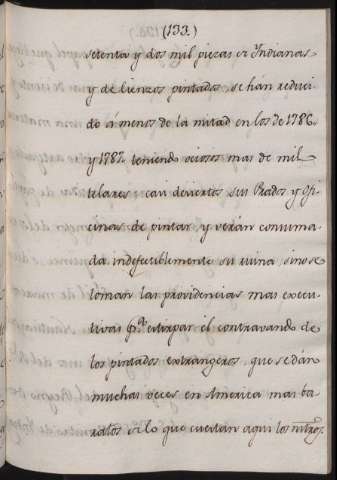 (133.)
setenta y dos mil piezas de Indianas
y de lienzos pintados, se han reduci-
do a menos de la mitad en los de 1786.
y 1787. teniendo ociosos mas de mil
telares: casi desiertos sus Prados y Ofi-
cinas de pintar, y verán consuma-
da indefectiblemente su ruina, sino se
toman las providencias mas execu-
tivas pª. extirpar el contravando de
los pintados extrangeros, que se dán
muchas veces en America mas ba-
ratos de lo que cuestan aqui los nŕos.